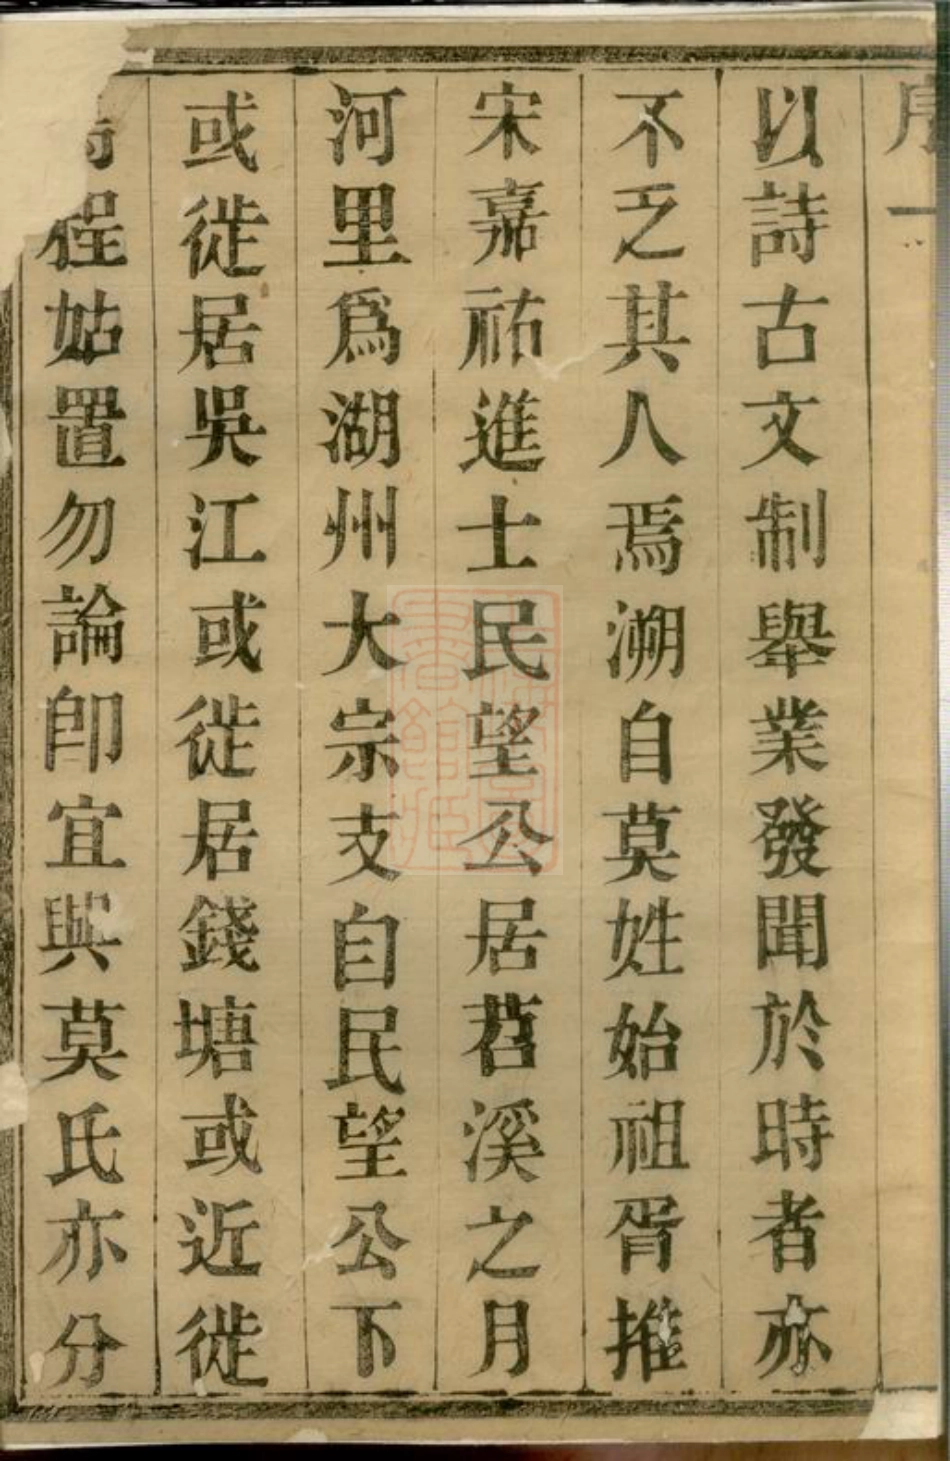 序一
以詩古文制舉業發聞於時者亦
不乏其人焉溯自莫姓始祖胥推
宋嘉祐進士民望公居苕溪之月
河里爲湖州大宗支自民望公下
或徙居吳江或徙居錢塘或近徙
程姑置勿論卽宜興莫氏亦分